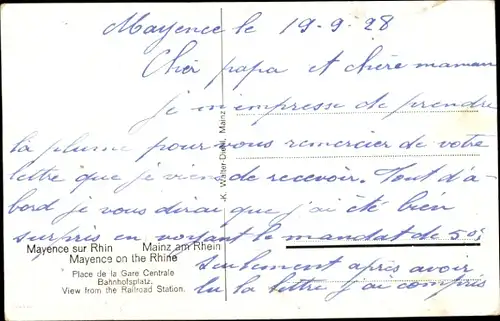 Mayence le 19-9-28
Cher papa et chère maman
je m'empresse de prendre
la plume pour vous remercier de votre
lettre que je viens de recevoir. Tout d'a-
bord je vous dirai que j'ai été bien
surpris en voyant le mandat de 50f
seulement après avoir
lu la lettre j'ai compris
Mayence sur Rhin Mainz am Rhein
Mayence on the Rhine
Place de la Gare Centrale
Bahnhofsplatz.
View from the Railroad Station.
Mainz